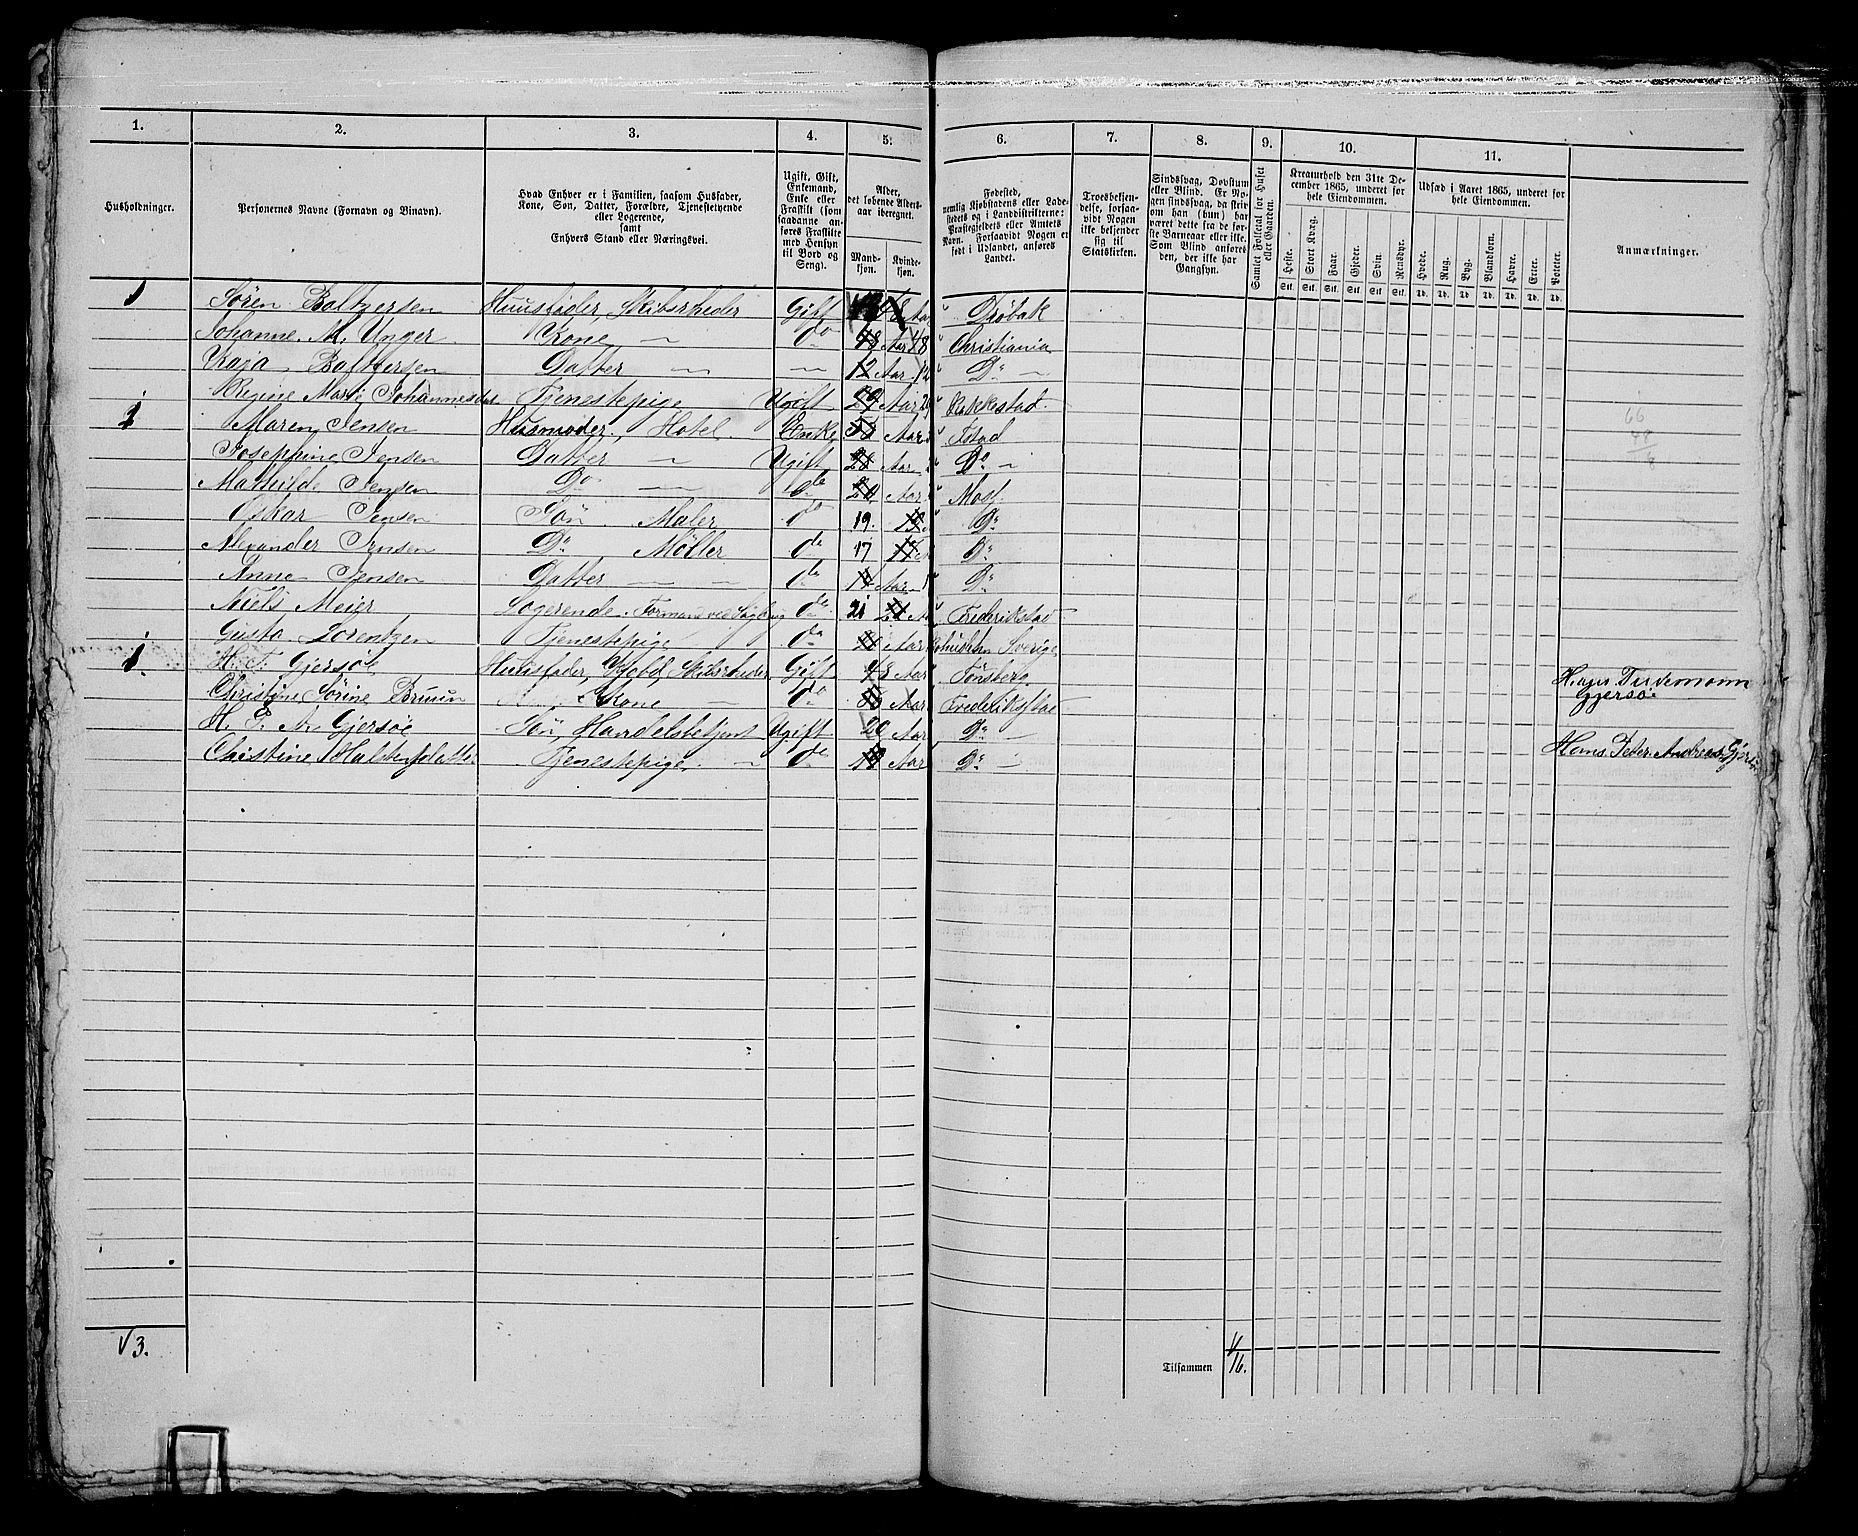 1. 2. 3. 4. 5. 6. 7. 8. 9. 10. 11.
Husholdninger.
Personernes Navne (Fornavn og Binavn).
Hvad Enhver er i Familien, saasom Husfader,
Kone, Søn, Datter, Forældre, Tjenestetyende
eller Logerende,
samt
Enhvers Stand eller Næringsvei.
Ugift, Gift,
Enkemand,
Enke eller
Fraskilt (som
saadanne an-
føres Fraskilte
med Hensyn
til Bord og
Seng).
Alder,
det løbende Alders-
aar iberegnet.
Mand-
kjøn.
Kvinde-
kjøn.
Fødested,
nemlig Kjøbstadens eller Lade-
stedets og i Landdistrikterne:
Præstegjeldets eller Amtets
Navn. Forsaavidt Nogen er
født i Udlandet, anføres
Landet.
Troesbekjen-
delse, forsaa-
vidt Nogen
ikke bekjender
sig til
Statskirken.
Sindssvag, Døvstum
eller Blind. Er No-
gen sindssvag, da skriv
om han (hun) har
været dette fra de før-
ste Barneaar eller ikke.
Som Blind anføres
den, der ikke har
Gangsyn.
Samlet Folketal for Huset
eller Gaarden.
Kreaturhold den 31te De-
cember 1865, underet for
hele Eiendommen.
Heste. Stort Kvæg. Faar. Gjeder. Svin. Rensdyr.
Stk. Stk. Stk. Stk. Stk. Stk.
Udsæd i Aaret 1865, underet for
hele Eiendommen.
Hvede. Rug. Byg. Blandkorn. Havre. Erter. Poteter.
Td. Td. Td. Td. Td. Td. Td.
Anmærkninger.
1 Søren Baltzersen Huusfader, Skibsrheder Gift 48 Aar Drøbak
Johanne M. Unger Kone — do 48 Aar 48 Christiania
Kaja Baltzersen Datter — — 12 Aar 12 Do —
Regine Marie Johannesdat Tjenestepige Ugift 29 Aar 29 Rakkestad
1 Maren Jensen Husmoder, Hotel Enke 58 Aar Idd
Josephine Jensen Datter — Ugift 28 Aar Do —
66
48
8
Mathilde Jensen Do — do Aar Moss
Oskar Jensen Søn Maler do 19. Do
Alexander Jensen Do Møller do 17 Do
Anne Jensen Datter — do Aar Do
Niels Meier Logerende. Formand ved Sagbrug do 21 Frederikstad
Gusta Lorentzen Tjenestepige do Aar Sverige
1 H. T. Gjersøe Huusfader, Kjøbd, Skibsrheder Gift 48 Aar Tønsberg
Hans Tidemann
Gjersø.
Christine Sørine Bruun Kone — do Aar Frederikstad
H. P. A. Gjersøe Søn, Handelsbetjent Ugift 20 Aar Do —
Hans Peter Andreas Gjersø
Christine Halvensdatter Tjenestepige — do Aar Do —
√ 3.
Tilsammen √ 16.